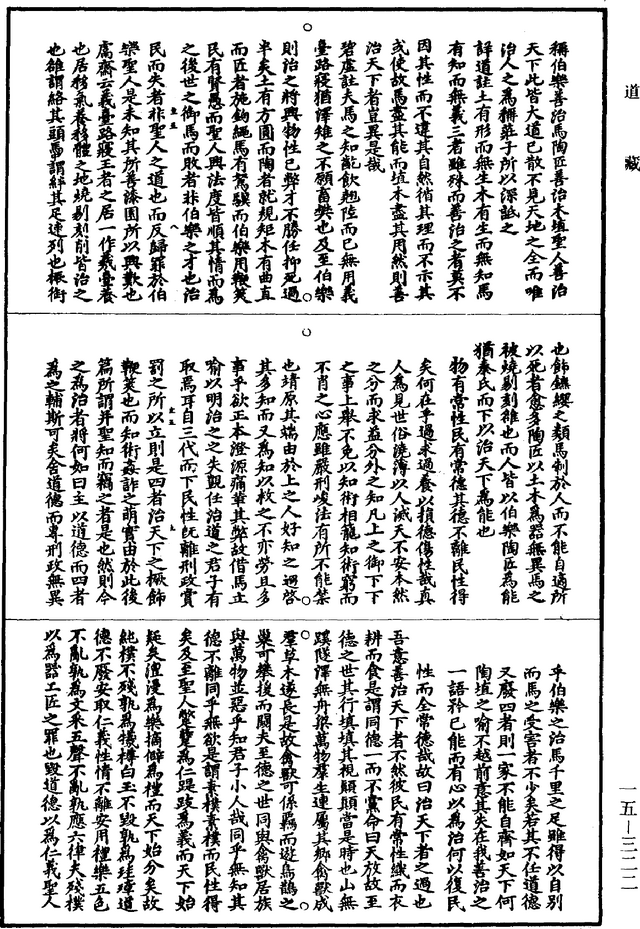 道藏
稱伯樂善治馬陶匠善治木埴聖人善治
天下此皆大道已散不見天地之全而唯
治人之為稱莊子所以深詆之
詳道註土有形而無生木有生而無知馬
有知而無義三者雖殊而善治之者莫不
因其性而不違其自然徇其理而不示其
或使故馬盡其能而埴木盡其用然則善
治天下者豈異是哉
碧虛註夫馬之知齕飲翹陸而已無用義
臺路寢猶澤雉之不願畜樊也及至伯樂
則治之將興物性已弊才不勝任抑死過
半矣土有方圓而陶者就規矩木有曲直
而匠者施鉤繩馬有駑驥而伯樂用鞭筴
民有賢愚而聖人興法度皆順其情而為
之後世之御馬而敗者非伯樂之才也治
民而失者非聖人之道也而反歸罪於伯
樂聖人是未知其所善漆園所以興歎也
鬳齋云義臺路寢王者之居一作羲臺養
也居移氣養移體之地燒剔刻削皆治之
也雒謂絡其頭馽謂絆其足連列也橛銜
也飾鑣纓之類馬制於人而不能自適所
以死者愈多陶匠以土木為器無異馬之
被燒剔刻雒也而人皆以伯樂陶匠為能
猶泰氏而下以治天下為能也
物有常性民有常德其德不離民性得
矣何在乎過求過養以損德傷性哉真
人為見世俗澆薄以人滅天不安本然
之分而求益分外之知凡上之御下下
之事上舉不免以知術相籠知術窮而
不肖之心應雖嚴刑峻法有所不能禁
也靖原其端由於上之人好知之過啓
其多知而又為知以救之不亦勞且多
事乎欲正本澄源痛革其弊故借馬立
喻以明治之之失觀任治道之君子有
取焉耳自三代而下民性既離刑政賞
罰之所以立則是四者治天下之橛飾
鞭筴也而知術姦詐之萌實由於此後
篇所謂并聖知而竊之者是也然則今
之為治者將何如曰主以道德而四者
為之輔斯可矣舍道德而專刑政無異
乎伯樂之治馬千里之足雖得以自別
而馬之受害者不少矣若其不任道德
又廢四者則一家不能自齊如天下何
陶埴之喻不越前意其失在我善治之
一語矜已能而有心以為治何以復民
性而全常德哉故曰治天下者之過也
吾意善治天下者不然彼民有常性織而衣
耕而食是謂同德一而不黨命曰天放故至
德之世其行填填其視顛顛當是時也山無
蹊隧澤無舟梁萬物羣生連屬其鄉禽獸成
羣草木遂長是故禽獸可係羈而遊烏鵲之
巢可攀援而闚夫至德之世同與禽獸居族
與萬物並惡乎知君子小人哉同乎無知其
德不離同乎無欲是謂素樸素樸而民性得
矣及至聖人蹩躠為仁踶跂為義而天下始
疑矣澶漫為樂摘僻為禮而天下始分矣故
純樸不殘孰為犧樽白玉不毀孰為珪璋道
德不廢安取仁義性情不離安用禮樂五色
不亂孰為文采五聲不亂孰應六律夫殘樸
以為器工匠之罪也毀道德以為仁義聖人
一五—三二二